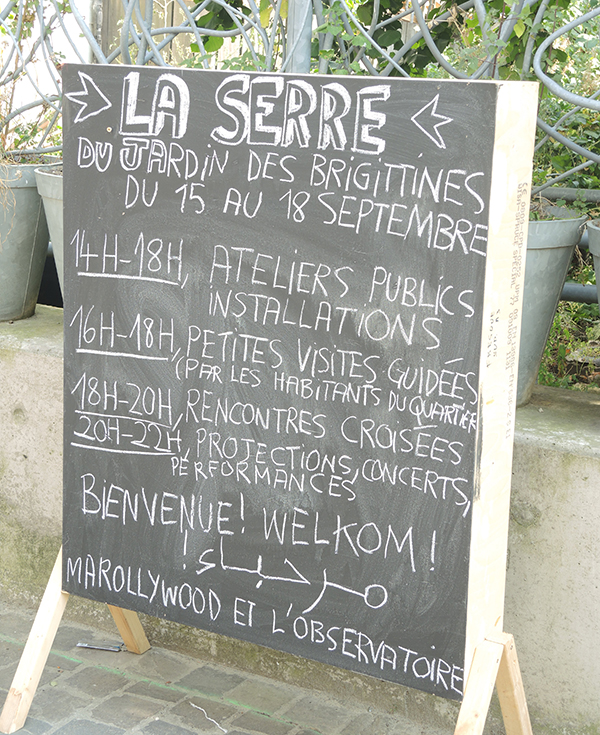 LA SERRE
DU JARDIN DES BRIGITTINES
DU 15 AU 18 SEPTEMBRE
14H-18H, ATELIERS PUBLICS
INSTALLATIONS
16H-18H, PETITES VISITES GUIDÉES
(PAR LES HABITANTS DU QUARTIER
18H-20H, RENCONTRES CROISÉES
20H-22H, PROJECTIONS, CONCERTS,
PERFORMANCES
BIENVENUE! WELKOM!
مرحباء!
MAROLLYWOOD ET L'OBSERVATOIRE